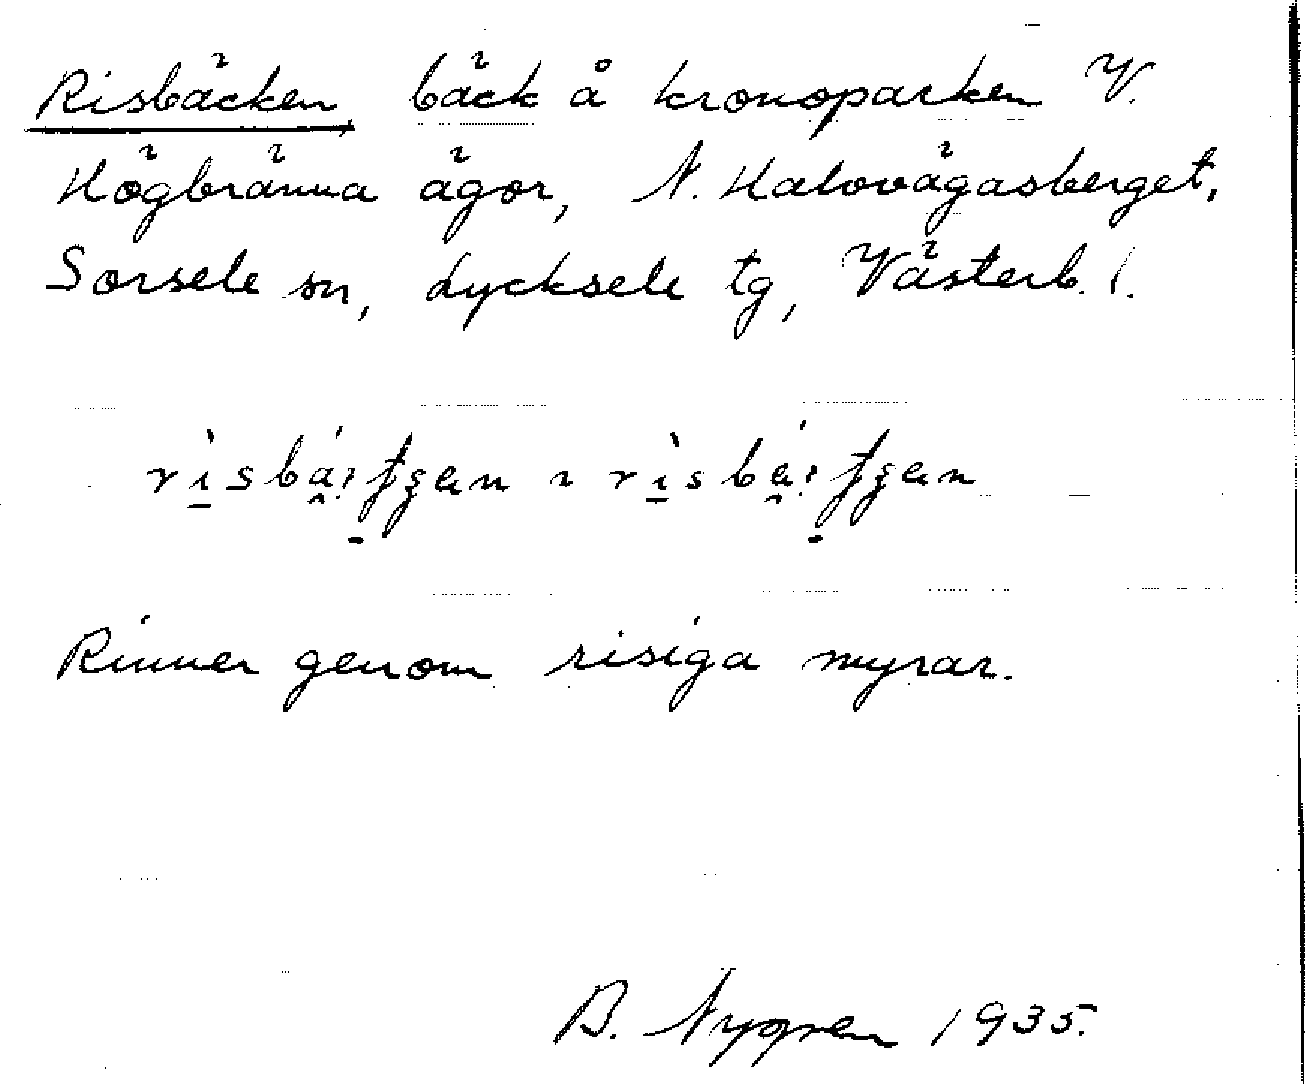 Risbäcken, bäck å kronoparken V.
Högbränna ägor, N. Halovägasberget,
Sorsele sn, Lycksele tg, Västerb. l.
Rinner genom risiga myrar.
B. Nygren 1935.